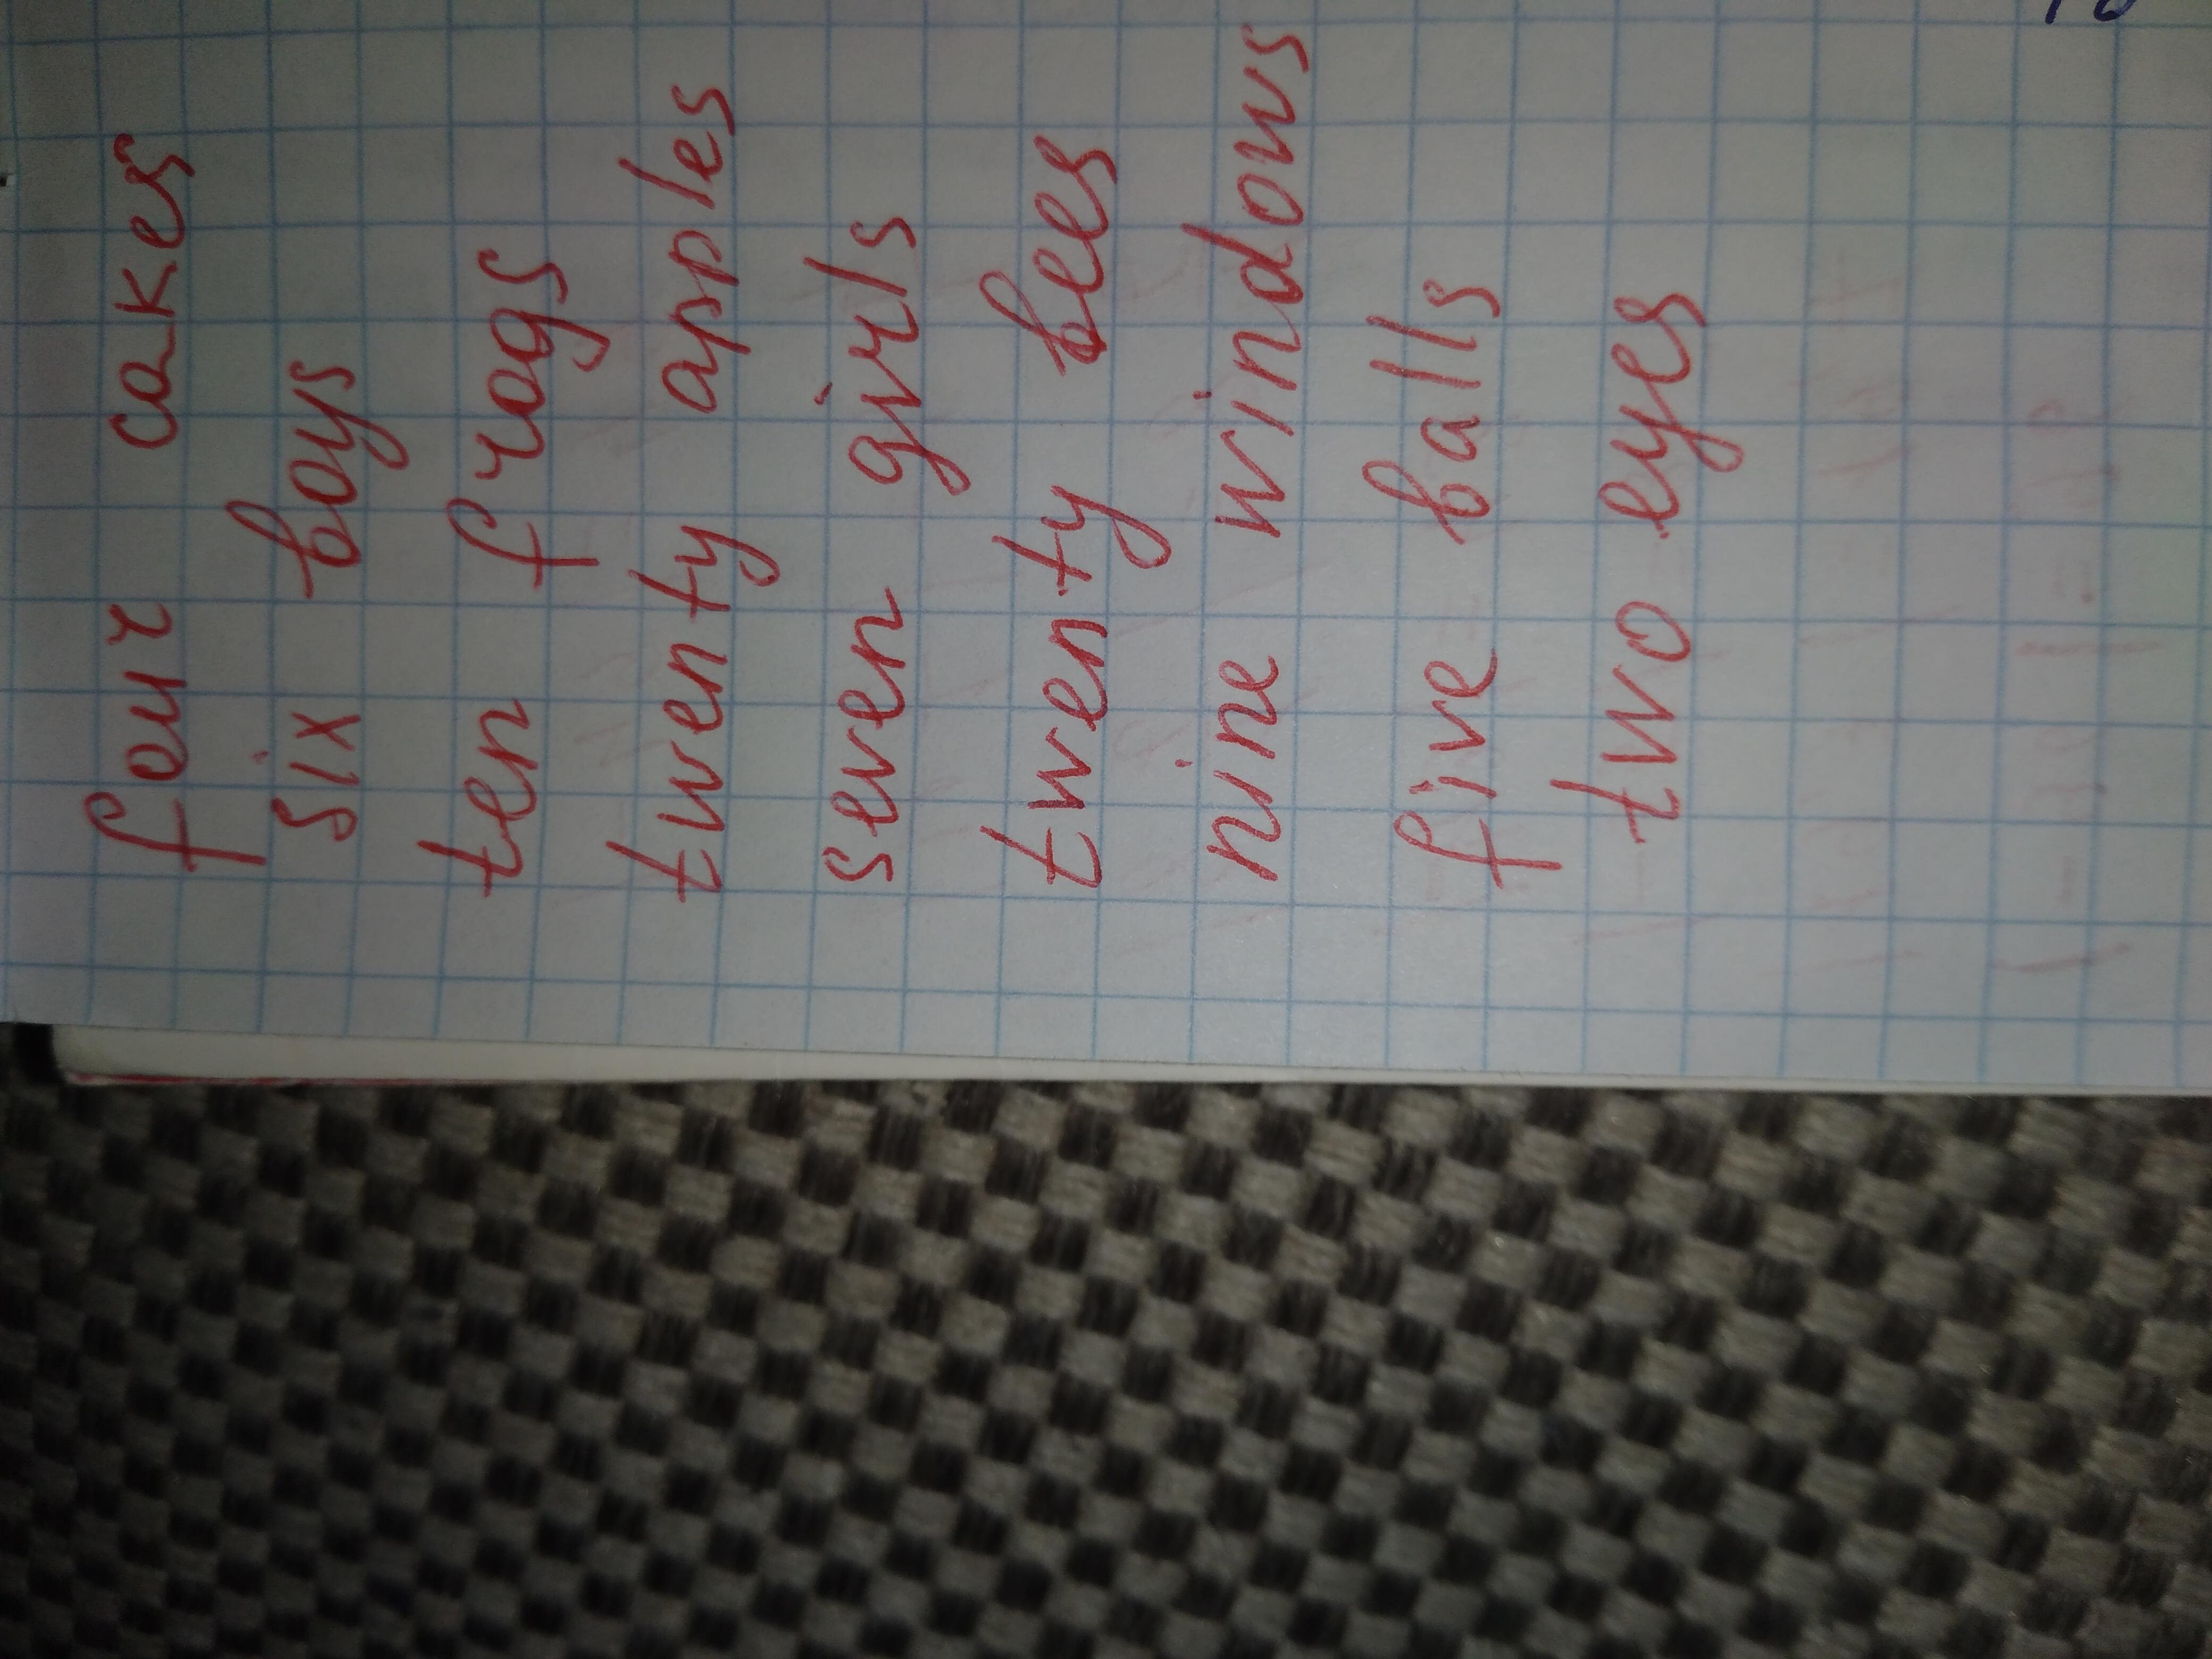 feur cakes
six boys
ten frogs
twenty apples
seven girls
twenty bees
nine windows
five balls
two eyes